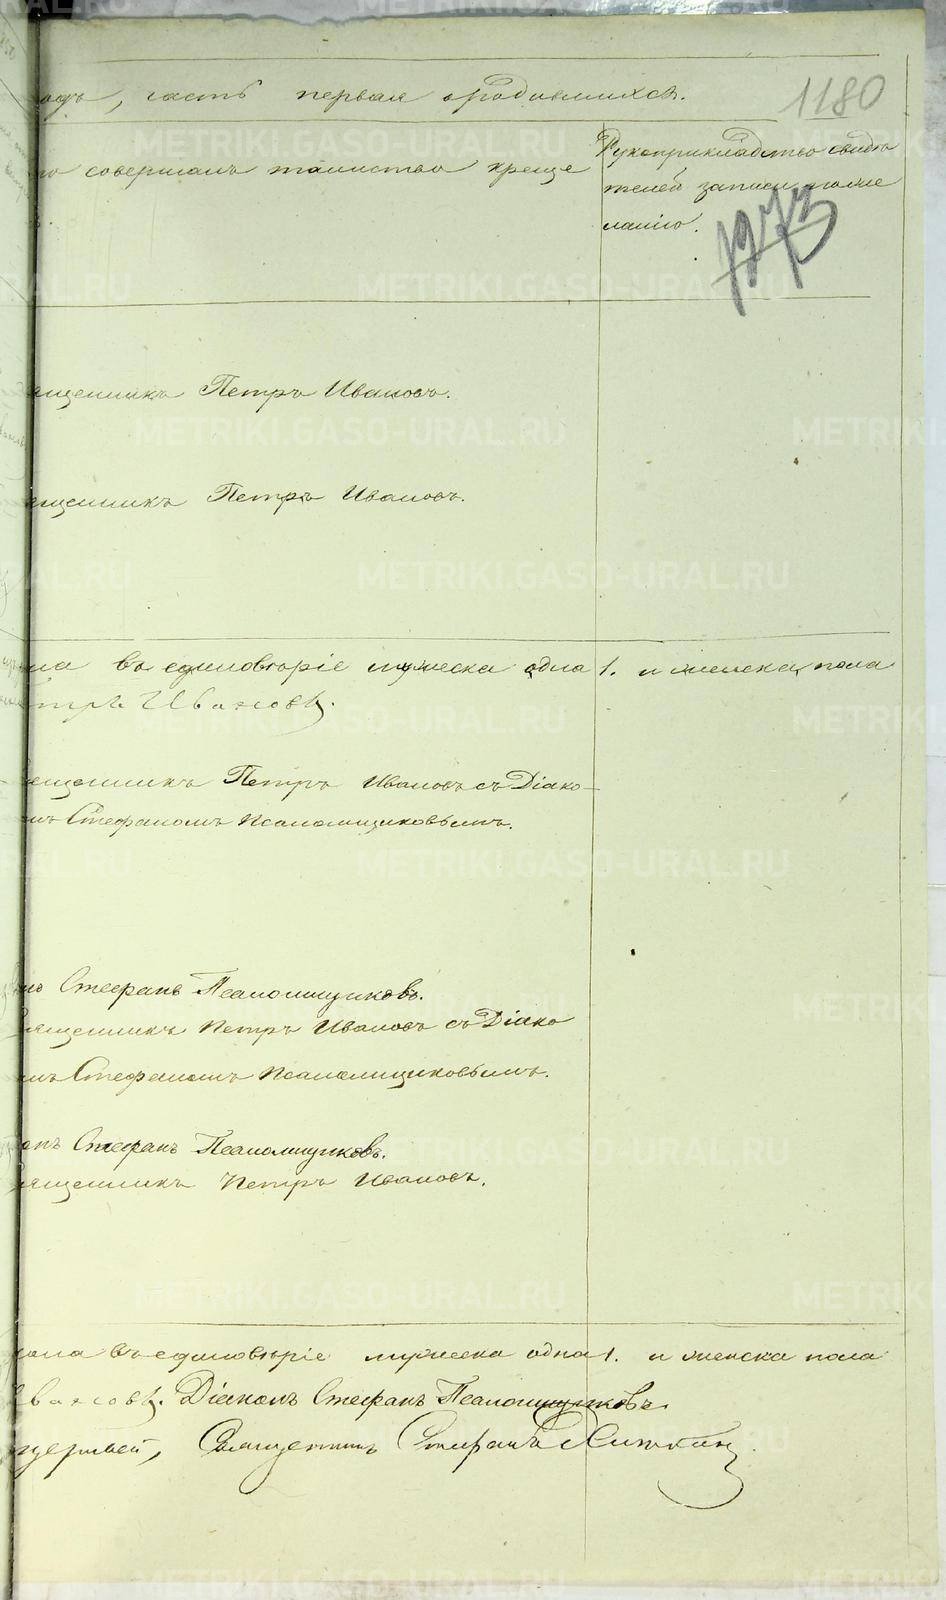 одъ, часть первая о родившихся.
1180
то совершалъ таинство креще
Рукоприкладство свидѣ
телей записи по же
ланію.
1273
ященникъ Петръ Ивановъ.
ященникъ Петръ Ивановъ.
ола въ единовѣріе мужеска одна 1. и женска пола
тръ Ивановъ.
ященникъ Петръ Ивановъ съ Діако-
мъ Стефаномъ Псаломщиковымъ.
нъ Стефанъ Псаломщиковъ.
ященникъ Петръ Ивановъ съ Діако
мъ Стефаномъ Псаломщиковымъ.
онъ Стефанъ Псаломщиковъ.
ященникъ Петръ Ивановъ.
ола въ единовѣріе мужеска одна 1. и женска пола
Ивановъ. Діаконъ Стефанъ Псаломщиковъ.
церквей, Священникъ Стефанъ